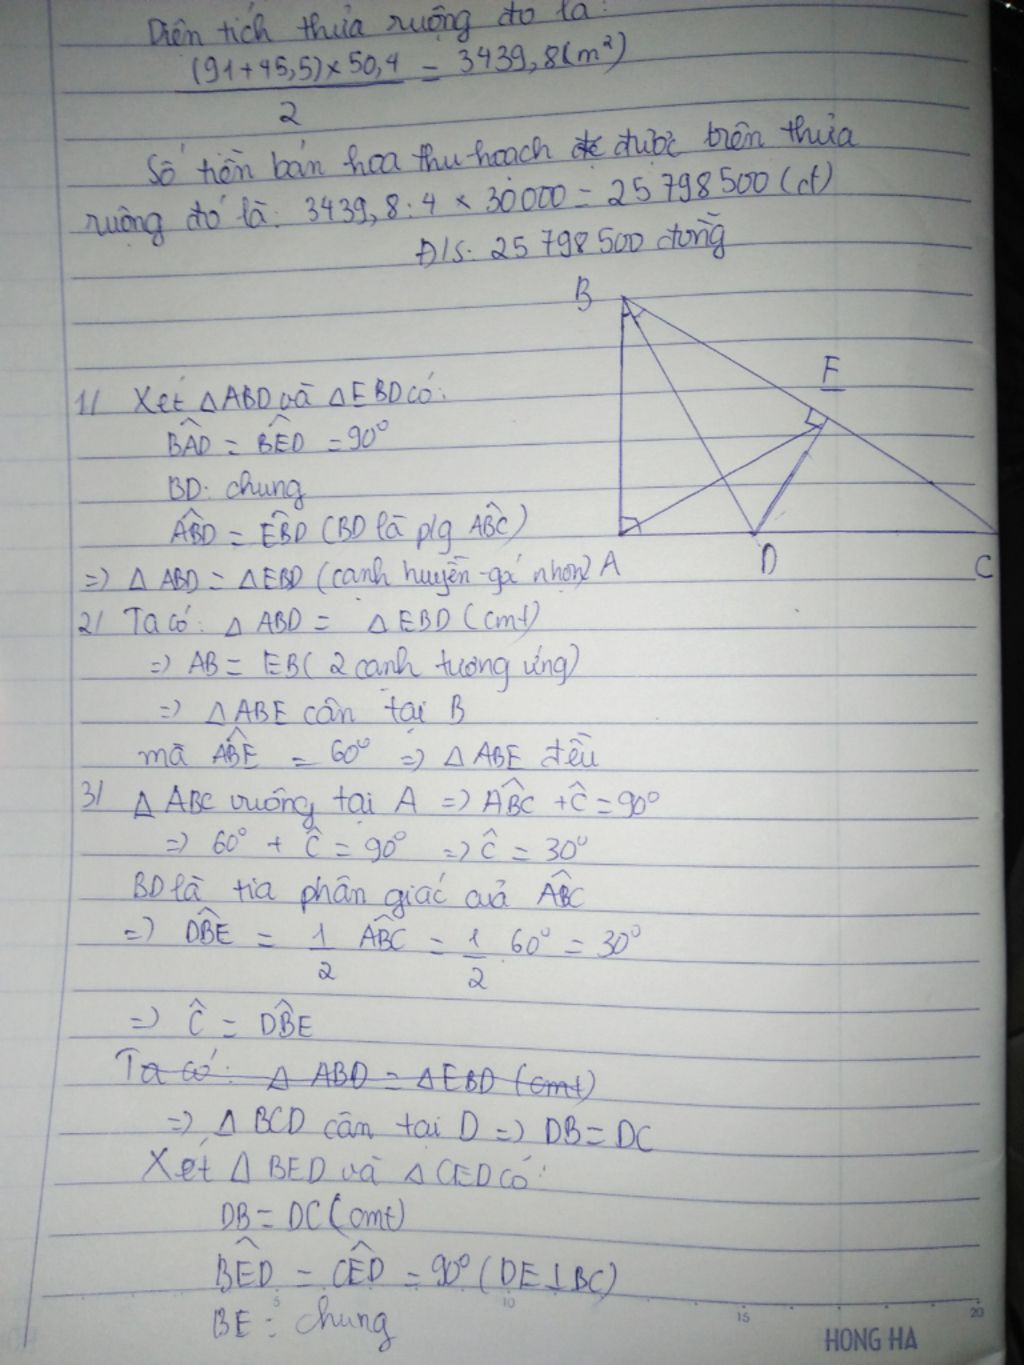 Diện tích thửa ruộng đó là:
(91+45,5)×50,4 = 3439,8(m²)
2
Số tiền bán hoa thu hoạch được trên thửa
ruộng đó là: 3439,8:4 × 30000 = 25798500(đ)
Đ/S: 25 798 500 đồng
B
E
1/ Xét △ABD và △EBD có:
BAD̂ = BED̂ = 90°
BD: chung
ABD̂ = EBD̂ (BD là p/g ABĈ)
=> △ ABD = △EBD (cạnh huyền-gá nhọn) A D C
2/ Ta có: △ ABD = △ EBD (cmt)
=> AB = EB( 2 cạnh tương ứng)
=> △ABE cân tại B
mà ABÊ = 60° => △ ABE đều
3/ △ ABC vuông tại A => ABĈ + Ĉ = 90°
=> 60° + Ĉ = 90° => Ĉ = 30°
BD là tia phân giác của ABĈ
=> DBÊ = 1 ABĈ = 1 . 60° = 30°
2 2
=> Ĉ = DBÊ
Ta có: △ ABD = △EBD (cmt)
=> △ BCD cân tại D => DB = DC
Xét △ BED và △CED có:
DB = DC (cmt)
BED̂ = CED̂ = 90° (DE⊥BC)
BE: chung
5 10 15 20
HONG HA